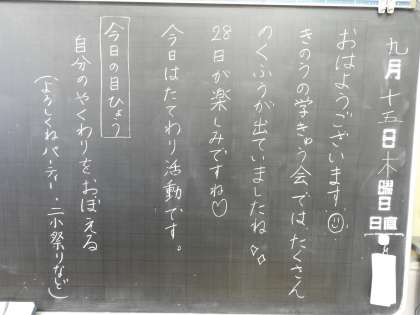 九月十五日木曜日
日直
おはようございます。
きのうの学きゅう会ではたくさん
のくふうが出ていましたね
28日が楽しみですね♡
今日はたてわり活動です。
今日の目ひょう
自分のやくわりをおぼえる
(よろしくねパーティー・二小祭りなど)